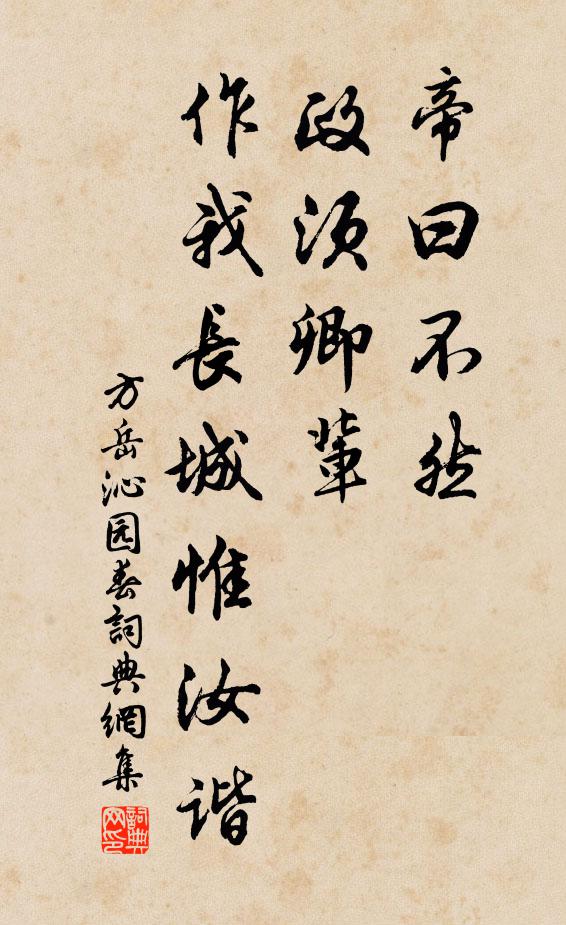 帝曰不然
政须卿輩
作我長城惟汝谐
方岳沁园春詞典網集
詞典网印